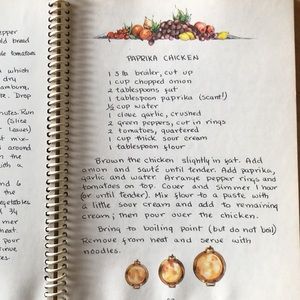 PAPRIKA CHICKEN
1 3 lb broiler, cut up
1 cup chopped onion
2 tablespoons fat
1 tablespoon paprika (scant!)
1/2 cup water
1 clove garlic, crushed
2 green peppers, cut in rings
2 tomatoes, quartered
1 cup thick sour cream
1 tablespoon flour
Brown the chicken slightly in fat. Add
onion and sauté until tender. Add paprika,
garlic and water. Arrange pepper rings and
tomatoes on top. Cover and simmer 1 hour
(or until tender). Mix flour to a paste with
a little sour cream and add to remaining
cream; then pour over the chicken.
Bring to boiling point (but do not boil)
Remove from heat and serve with
noodles.
pepper
bread
tomatoes
which
dry
Drop
Run
(Slice
Leaves)
mix-
around
in the
with a
and 6
the
vegetables
and 3/4